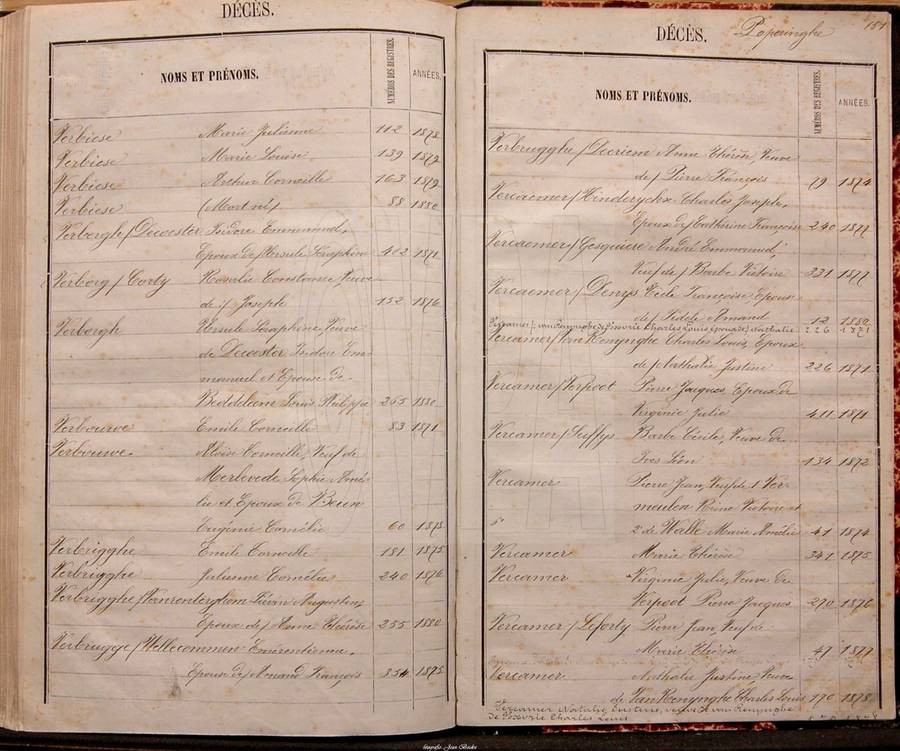 DÉCÈS.
NOMS ET PRÉNOMS.
NUMÉROS DES REGISTRES.
ANNÉES.
Verbiese Marie Julienne 112 1878
Verbiese Marie Louise 139 1879
Verbiese Arthur Corneille 163 1879
Verbiese (Mort né) 88 1880
Verborgh / Decoester Isidore Emmanuel,
Epoux de / Ursule Séraphine 402 1871
Verborg / Corty Rosalie Constance Veuve
de / Joseph 152 1876
Verborgh Ursule Séraphine, Veuve
de Decoester Isidore Em-
manuel et Epouse de
Beddeleem Louis Philippe 265 1880
Verbouwe Emile Corneille 83 1871
Verbouwe Aloise Corneille, Veuf de
Merlevede Sophie Amé-
lie et Epoux de Beun
Eugénie Cornélie 60 1878
Verbrigghe Emile Corneille 181 1875
Verbrigghe Julienne Cornélie 240 1876
Verbrigghe / Vanrenterghem Liévin Augustin,
Epoux de / Anne Thérèse 255 1880
Verbrugge / Wellecomme Emérentienne,
Epouse de / Amand François 354 1875
DÉCÈS. Poperinghe 184
NOMS ET PRÉNOMS.
NUMÉROS DES REGISTRES.
ANNÉES.
Verbrugghe / Decriem Anne Thérèse, Veuve
de / Pierre François 79 1874
Vercaemer / Hinderyckx Charles Joseph,
Epoux de / Cathérine Françoise 240 1877
Vercaemer / Gesquiere André Emmanuel,
Veuf de / Barbe Victoire 331 1877
Vercaemer / Denys Cécile Françoise, Epouse
de / Fidèle Amand 12 1880
Charles Louis, epoux de / Nathalie 226 1871
Vercamer / Van Renynghe Charles Louis, Epoux
de / Nathalie Justine 226 1871
Vercamer / Verpoot Pierre Jacques, Epoux de
Virginie Julie 411 1871
Vercamer / Seffys Barbe Cécile, Veuve de
Yves Léon 134 1872
Vercamer Pierre Jean, Veuf de 1° Ver-
meulen Reine Victoire et
2° de Walle Marie Amélie 41 1874
Vercamer Marie Thérèse 341 1875
Vercamer Virginie Julie, Veuve de
Verpoot Pierre Jacques 270 1876
Vercamer / Leforty Pierre Jean, Veuf de
Marie Thérèse 47 1877
Vercamer Nathalie Justine, Veuve
de Van Renynghe Charles Louis 170 1878
Vercamer Natalie Justine, veuve de van Renynghe
de Poxvrie Charles Louis 170 1878
fotografie: Jean Beckx